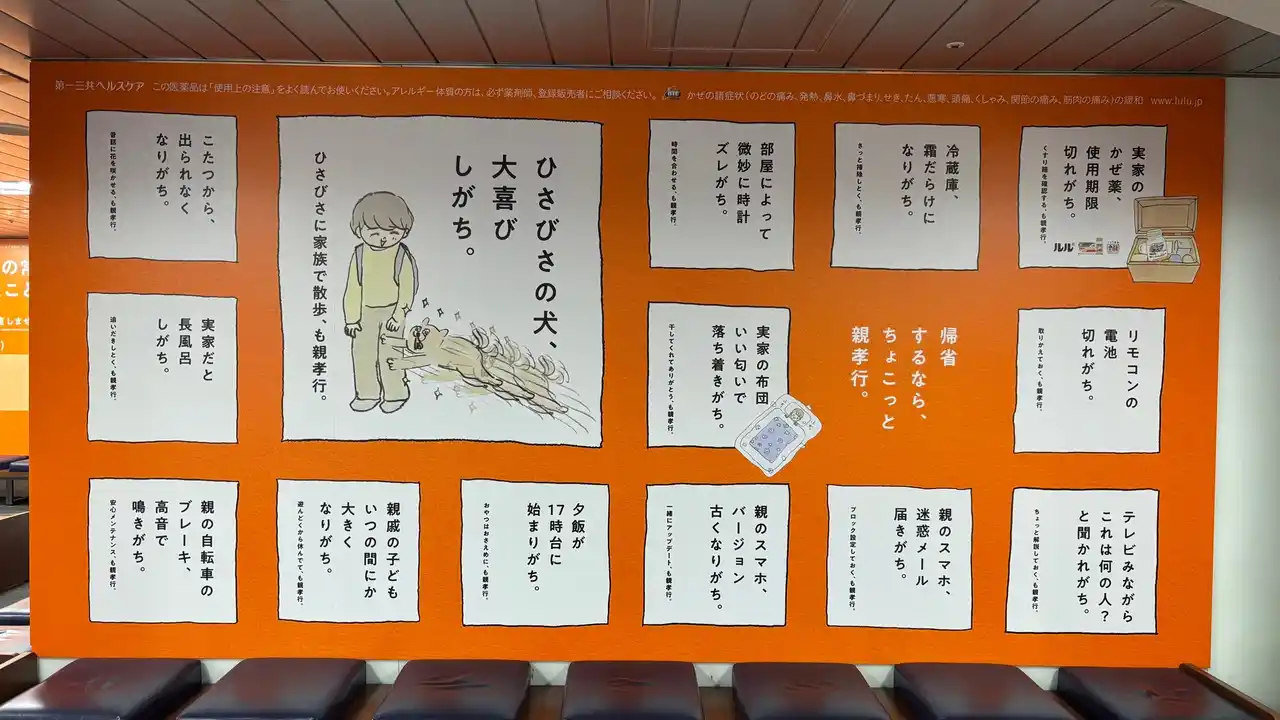 第一三共ヘルスケア この医薬品は「使用上の注意」をよく読んでお使いください。アレルギー体質の方は、必ず薬剤師、登録販売者にご相談ください。
かぜの諸症状(のどの痛み、発熱、鼻水、鼻づまり、せき、たん、悪寒、頭痛、くしゃみ、関節の痛み、筋肉の痛み)の緩和 www.lulu.jp
実家の
かぜ薬、
使用期限
切れがち。
くすり箱を確認する、も親孝行。
ルル
冷蔵庫、
霜だらけに
なりがち。
さっと掃除しとく、も親孝行。
部屋によって
微妙に時計
ズレがち。
時間を合わせる、も親孝行。
ひさびさの犬、
大喜び
しがち。
ひさびさに家族で散歩、も親孝行。
こたつから、
出られなく
なりがち。
昔話に花を咲かせる、も親孝行。
リモコンの
電池
切れがち。
取りかえておく、も親孝行。
帰省
するなら、
ちょこっと
親孝行。
実家の布団
いい匂いで
落ち着きがち。
干してくれてありがとう、も親孝行。
実家だと
長風呂
しがち。
追いだきしとく、も親孝行。
テレビみながら
これは何の人?
と聞かれがち。
ちょっと解説しておく、も親孝行。
親のスマホ、
迷惑メール
届きがち。
ブロック設定しておく、も親孝行。
親のスマホ、
バージョン
古くなりがち。
一緒にアップデート、も親孝行。
夕飯が
17時台に
始まりがち。
おやつはおさえめに、も親孝行。
親戚の子ども
いつの間にか
大きく
なりがち。
遊んどくから休んでて、も親孝行。
親の自転車の
ブレーキ、
高音で
鳴きがち。
安心メンテナンス、も親孝行。